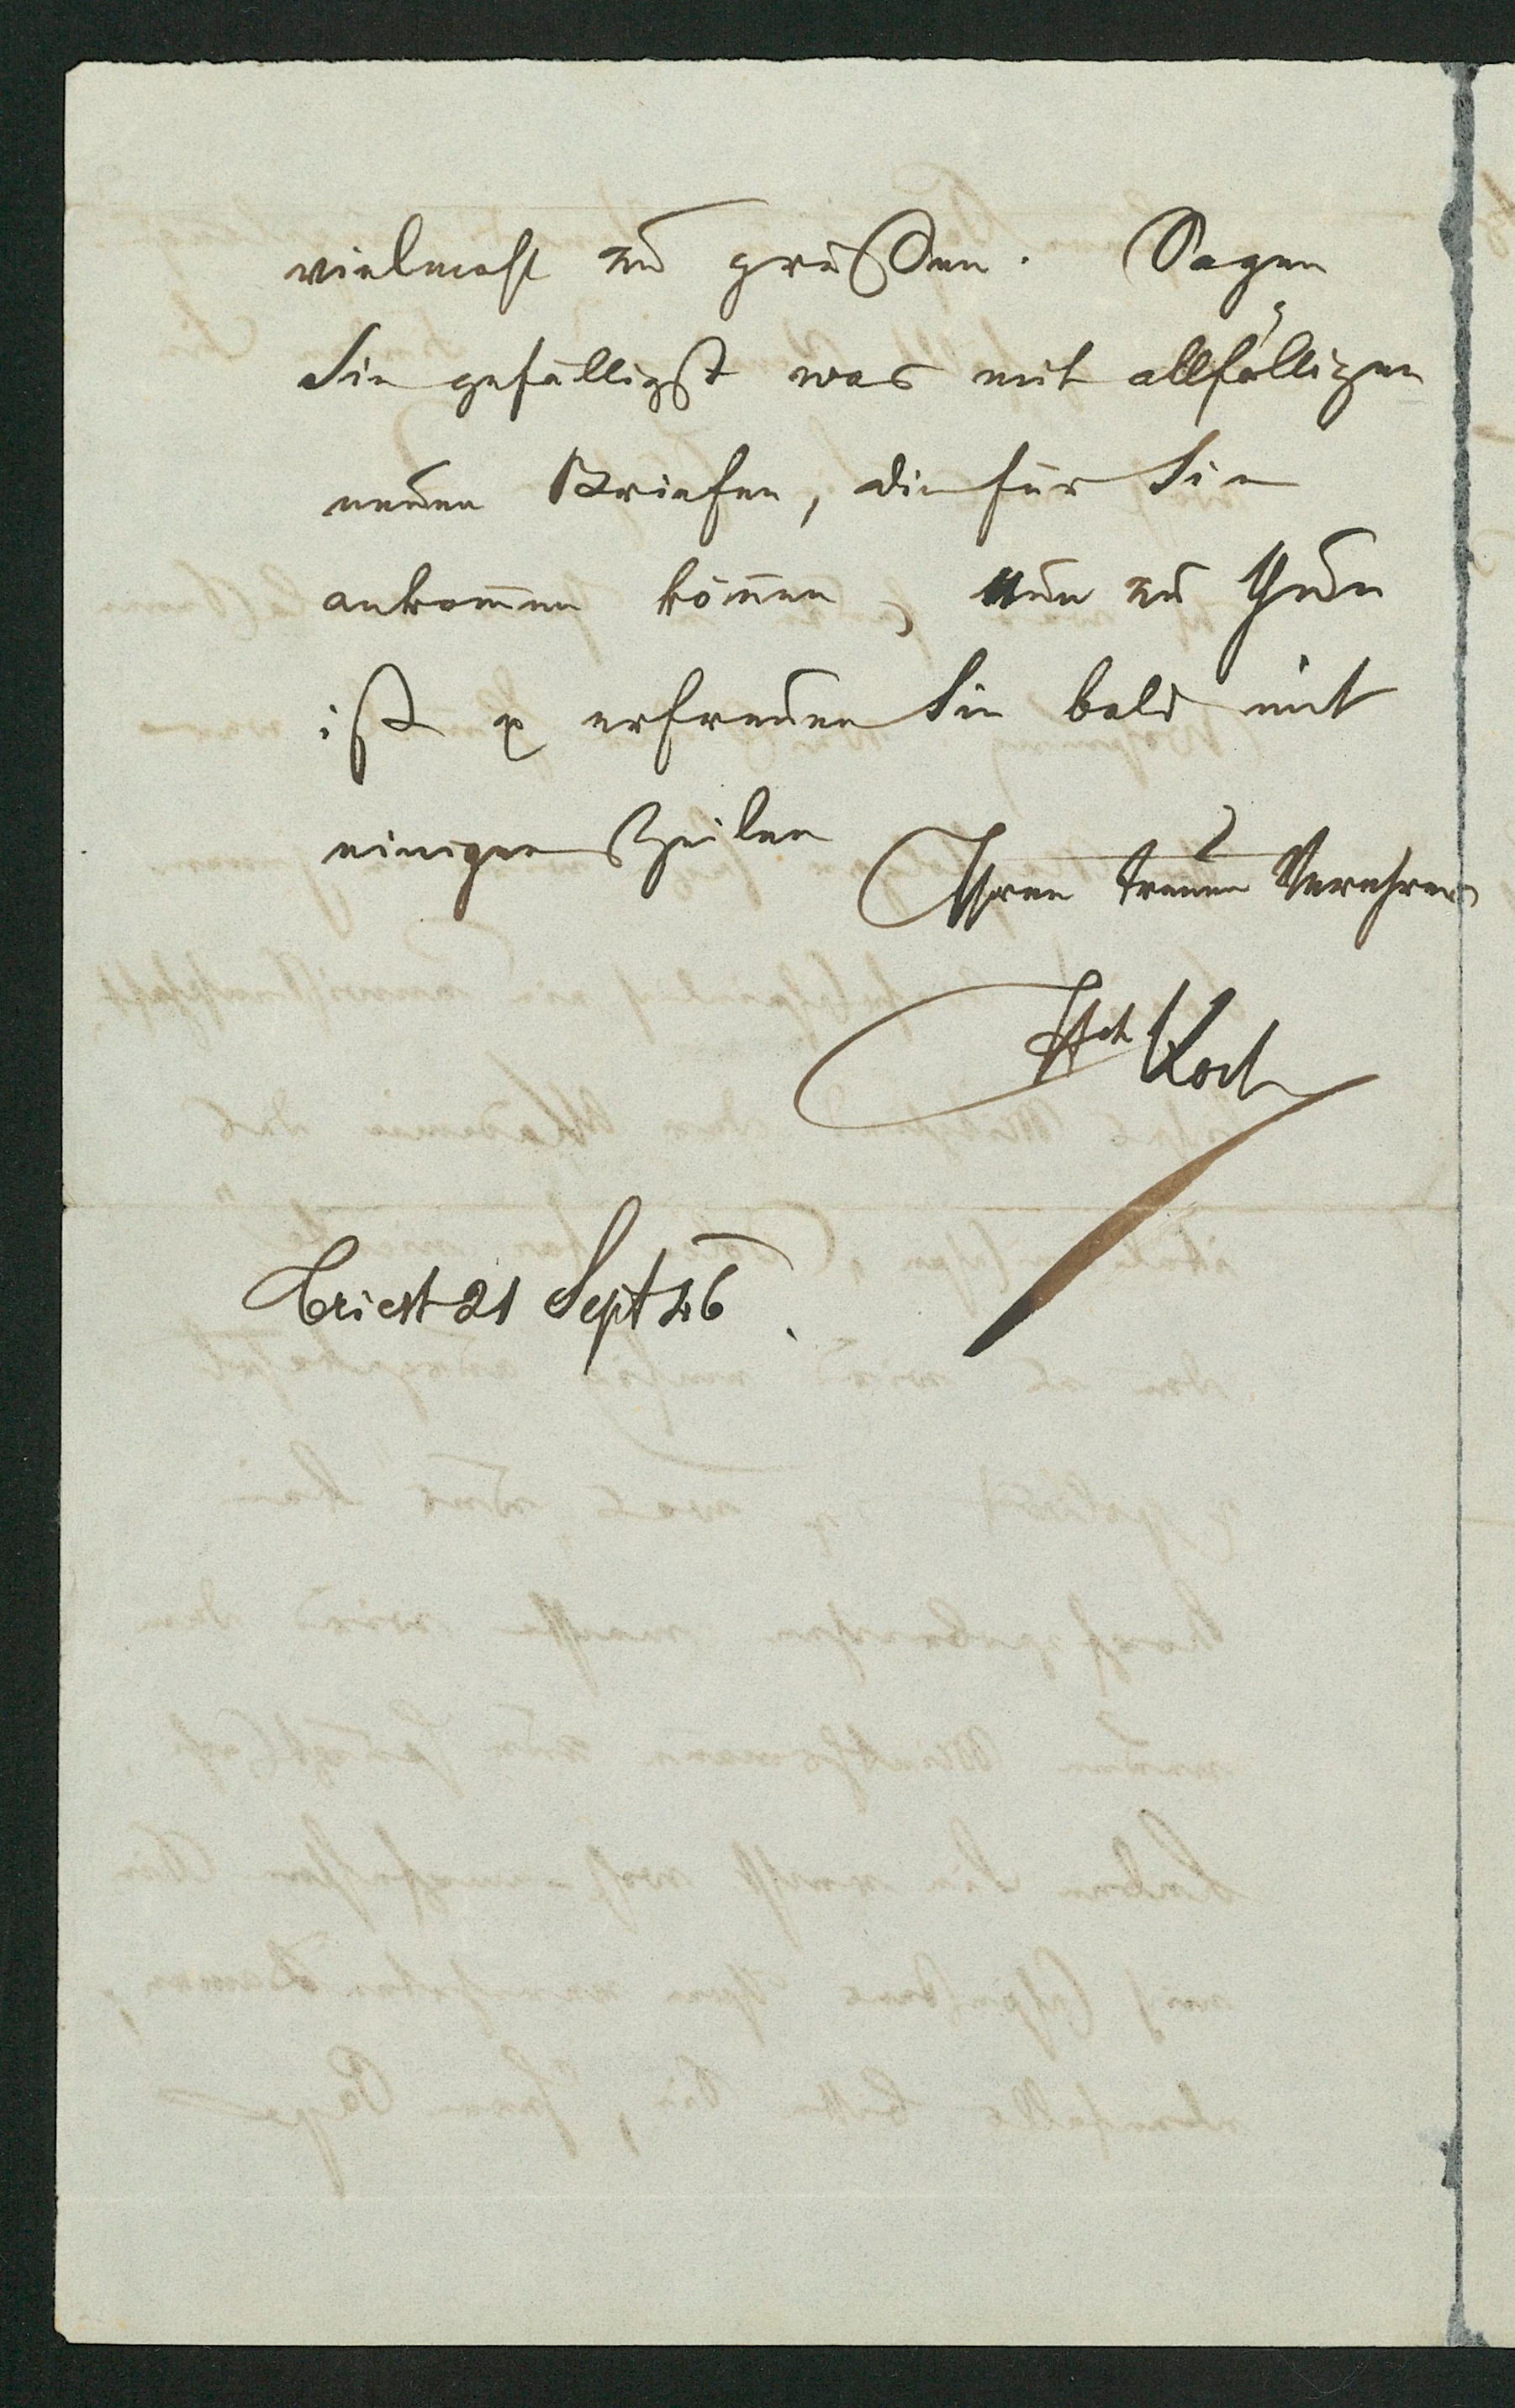 vielmahl zu grüßen. Sagen
Sie gefälligst was mit allfälligen
neuen Briefen, die für Sie
ankom̅en kön̅en, nun zu thun
ist & erfreuen Sie bald mit
einigen Zeilen
Ihren treuen Verehrer
Koch
Triest 21 Sept 46.